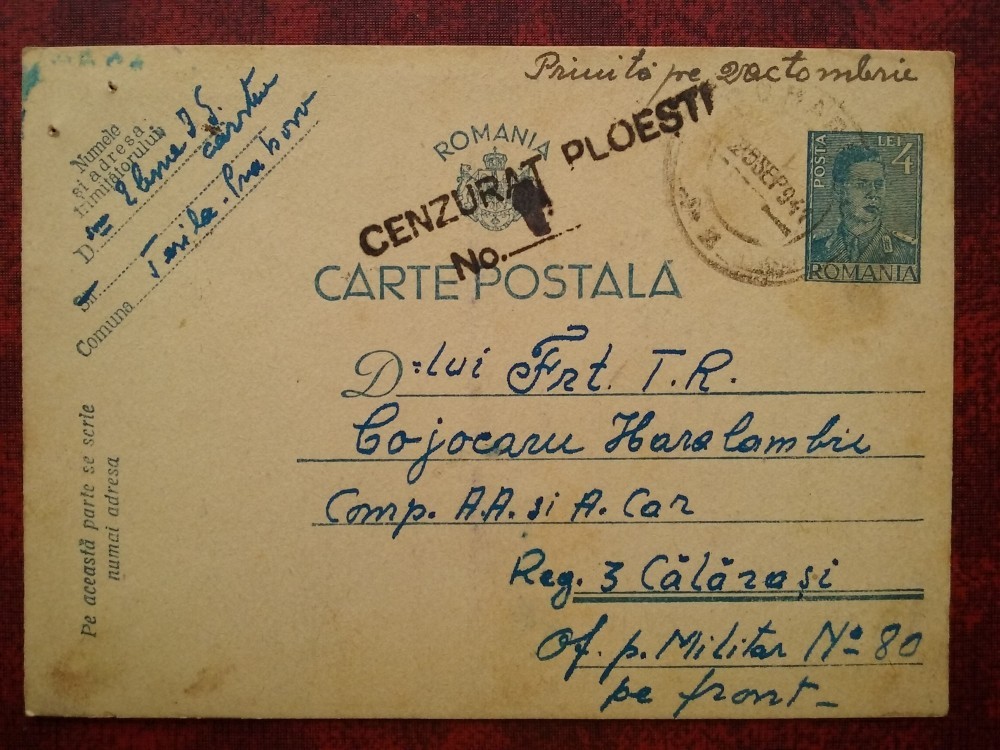 Primită pe 2 octombrie
Numele
și adresa
trimițătorului
D
Elena I. G.
Comuna
ROMANIA
CENZURAT PLOEȘTI
No.
25 SEP 941
POSTA LEI 4
ROMANIA
CARTE POSTALĂ
D-lui Frt. T.R.
Cojocaru Haralambie
Comp. A.A. si A. Car
Reg. 3 Călărași
Of. p. Militar No 80
pe front
Pe această parte se scrie
numai adresa